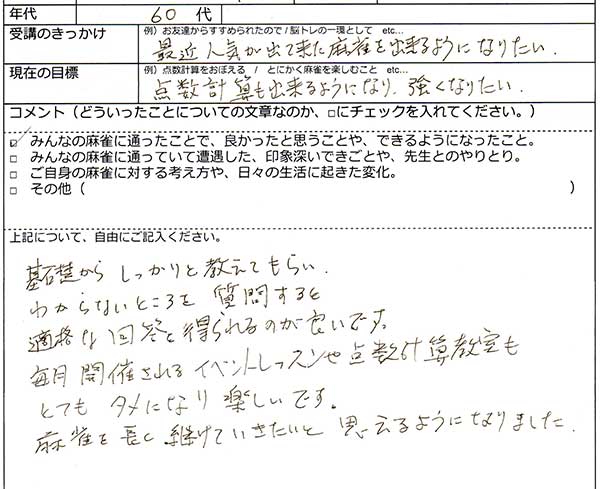 年代 60代
受講のきっかけ 例）お友達からすすめられたので / 脳トレの一環として etc…
最近人気が出て来た麻雀を出来るようになりたい.
現在の目標 例）点数計算をおぼえる / とにかく麻雀を楽しむこと etc…
点数計算も出来るようになり、強くなりたい.
コメント（どういったことについての文章なのか、□にチェックを入れてください。）
☑ みんなの麻雀に通ったことで、良かったと思うことや、できるようになったこと。
□ みんなの麻雀に通っていて遭遇した、印象深いできごとや、先生とのやりとり。
□ ご自身の麻雀に対する考え方や、日々の生活に起きた変化。
□ その他（ ）
上記について、自由にご記入ください。
基礎から しっかりと教えてもらい.
わからないところを 質問すると
適格な回答を得られるのが良いです。
毎月開催されるイベントレッスンや点数計算教室も
とても タメになり 楽しいです。
麻雀を長く継けていきたいと思えるようになりました.